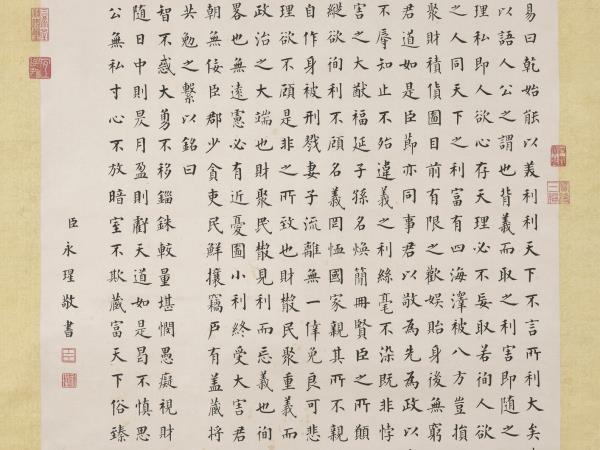 易曰乾始能以美利利天下不言所利大矣
以語人公之謂也背義而取之利害即隨之
理私即人欲心存天理必不妄取若徇人欲
之人同天下之利富有四海澤被八方豈損
聚財積貨圖目前有限之歡娛貽身後無窮
君道如是臣節亦同事君以敬為先為政以
不辱知止不殆違義之利絲毫不染既非悖
害之大猷福延子孫名煥簡冊賢臣之所願
縱欲徇利不顧名義罔恤國家親其所不親
自作身被刑戮妻子流離無一倖免良可悲
理欲不顧是非之所致也財散民聚重義而
政治之大端也財聚民散見利而忘義也徇
畧也無遠慮必有近憂圖小利終受大害君
朝無佞臣郡少貪吏民鮮攘竊戶有蓋藏將
共勉之繫以銘曰
智不惑大勇不移錙銖較量堪憫愚癡視財
隨日中則昃月盈則虧天道如是曷不慎思
公無私寸心不放暗室不欺藏富天下俗臻
臣永瑆敬書